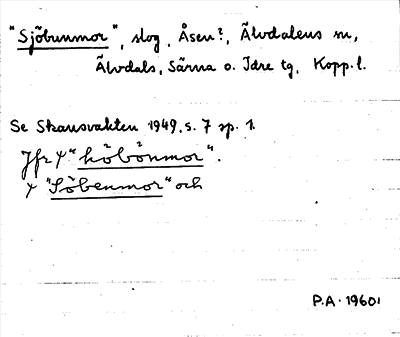 "Sjöbunmor", slog, Åsen?, Älvdalens sn,
Älvdals, Särna o. Idre tg, Kopp. l.
Se Skansvakten 1949, s. 7 sp. 1.
Jfr + "höbönmor".
+ "Söbenmor" och
P.A. 1960